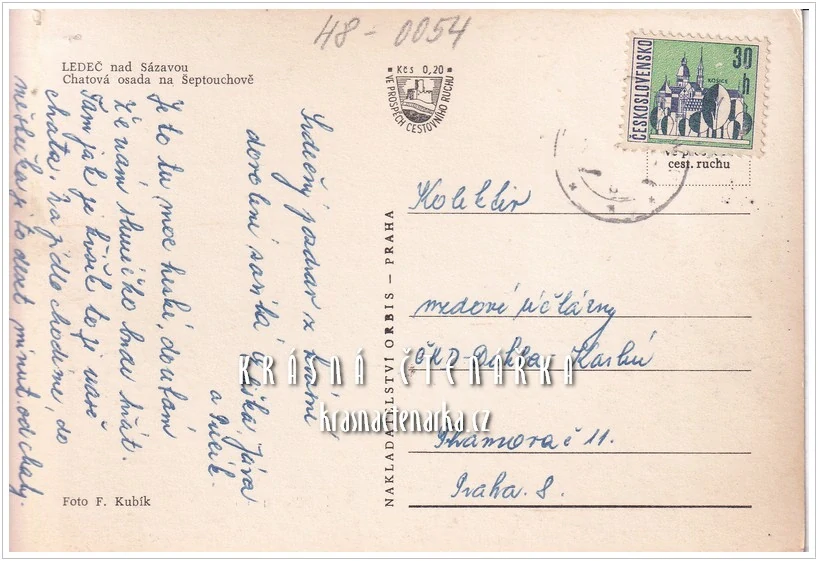 48-0054
LEDEČ nad Sázavou
Chatová osada na Šeptouchově
Kčs 0,20
VE PROSPĚCH CESTOVNÍHO RUCHU
ČESKOSLOVENSKO
30 h
KOŠICE
cest. ruchu
Srdečný pozdrav z
dovolené
a
Je to tu moc hezké, doufám
že nám sluníčko bude hřát.
Tam jak je křížek to je naše
chata. Na jídlo chodíme do
městečka je to deset minut od chaty.
Kolektiv
ČKD-Dukla Karlín
č 11.
Praha 8.
NAKLADATELSTVÍ ORBIS – PRAHA
Foto F. Kubík
KRÁSNÁ ČTENÁRKA
krasnactenarka.cz